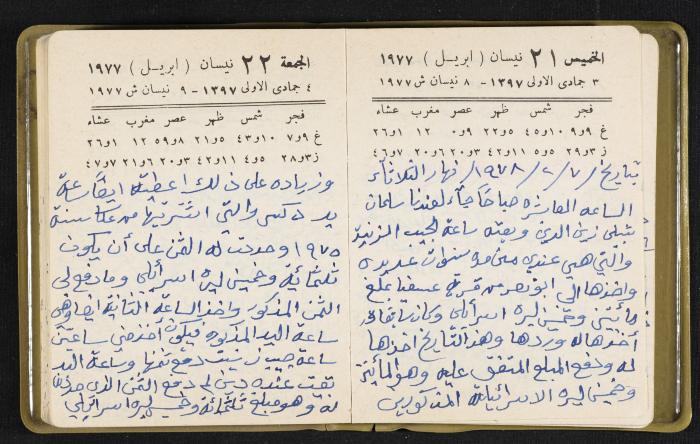 الخميس ٢١ نيسان ( ابريل ) ١٩٧٧
٣ جمادى الاولى ١٣٩٧ - ٨ نيسان ش ١٩٧٧
فجر شمس ظهر عصر مغرب عشاء
غ ٩و٩ ١٠و٤٥ ٥و٢٢ ٩و٠ ١٢ ١و٢٦
ز ٣و٢٩ ٥و٥ ١١و٤٢ ٣و٢٠ ٦و٢٠ ٧و٤٦
بتاريخ ٧/ ٢/ ١٩٧٨/ نهار الثلاثاء
الساعه العاشره صباحًا جاء لعندنا سلمان
شبلي زين الدين وبعته ساعة لجيب
والتي هي عندي من سنوات عديده
واخذها الى من قرية عسفيا بمبلغ
مأتين وخمسين ليره اسرائلي
أخذها له وردها وهذا التاريخ اخذها
له ودفع المبلغ المتفق عليه وهو المأتين
وخمسين ليره الاسرائليه المذكورين
الجمعة ٢٢ نيسان ( ابريل ) ١٩٧٧
٤ جمادى الاولى ١٣٩٧ - ٩ نيسان ش ١٩٧٧
فجر شمس ظهر عصر مغرب عشاء
غ ٩و٧ ١٠و٤٣ ٥و٢١ ٨و٥٩ ١٢ ١و٢٦
ز ٣و٢٨ ٥و٤ ١١و٤٢ ٣و٢٠ ٦و٢١ ٧و٤٧
وزياده على ذلك اعطيته ايضًا ساعة
يد دكسى والتي اشتريتها من عكا سنة
١٩٧٥ وحددت له الثمن على أن يكون
ثلثمائة وخمسين ليره اسرائلي وما دفع لي
الثمن المذكور واخذ الساعة الثانية ايضا وهي
ساعة اليد المذكوره فيكون أخذ مني ساعتين
ساعة جيب دفع ثمنها وساعة اليد
بقيت عنده دين لم يدفع الثمن الذي حددته
له وهو مبلغ ثلثمائة وخمسين ليره اسرائلي